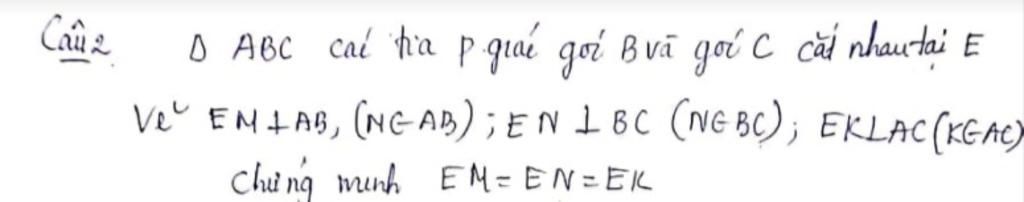 Câu 2 Δ ABC các tia p. giác gói B và gói C cắt nhau tại E
Vẽ EM⊥AB, (N∈AB); EN ⊥ BC (N∈BC); EK⊥AC (K∈AC)
Chứng minh EM = EN = EK